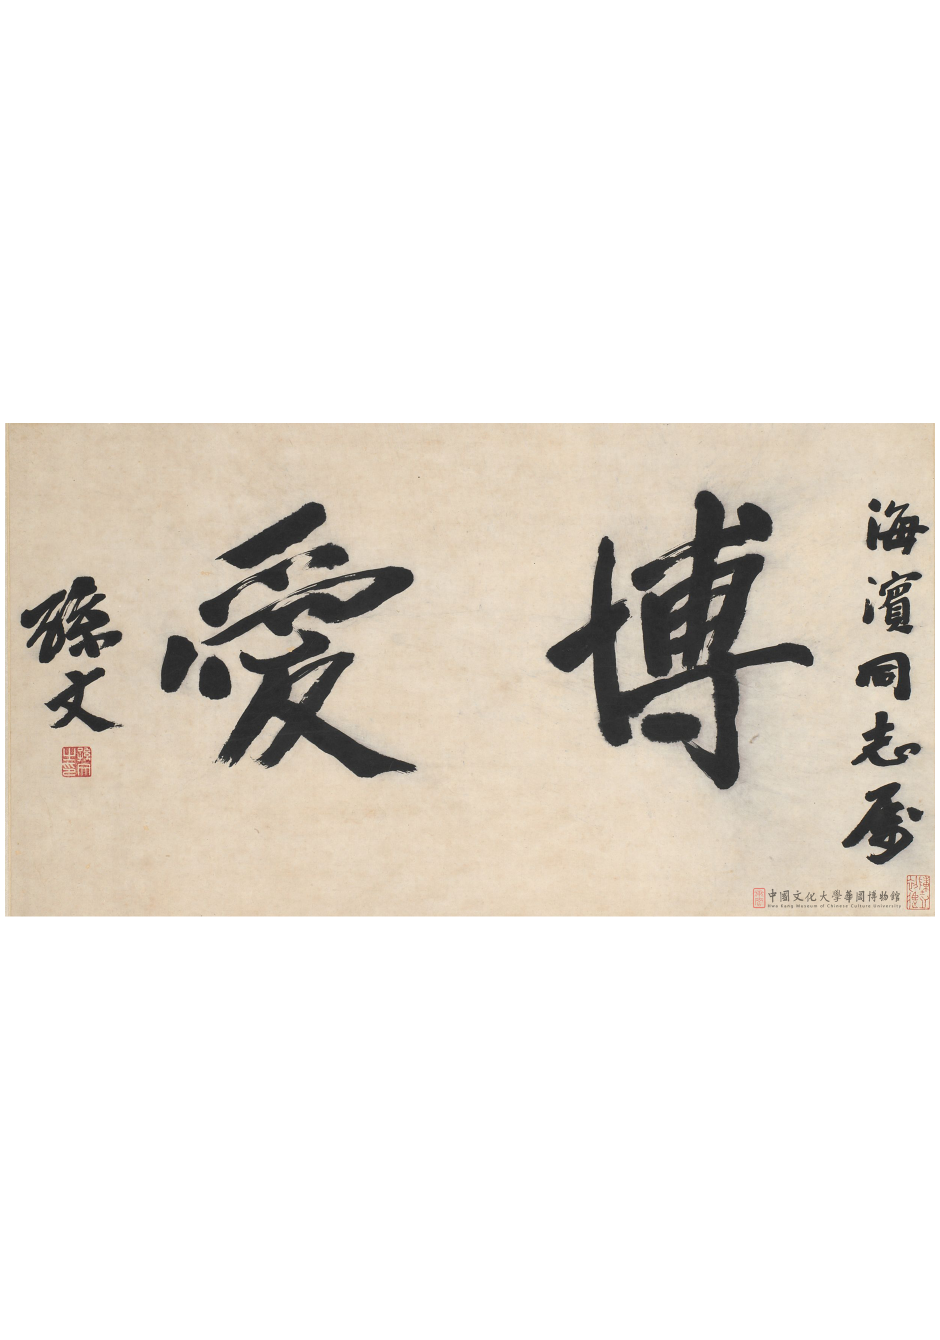 海濱同志屬
博愛
孫文
孫文之印
中國文化大學華岡博物館
Hwa Kang Museum of Chinese Culture University